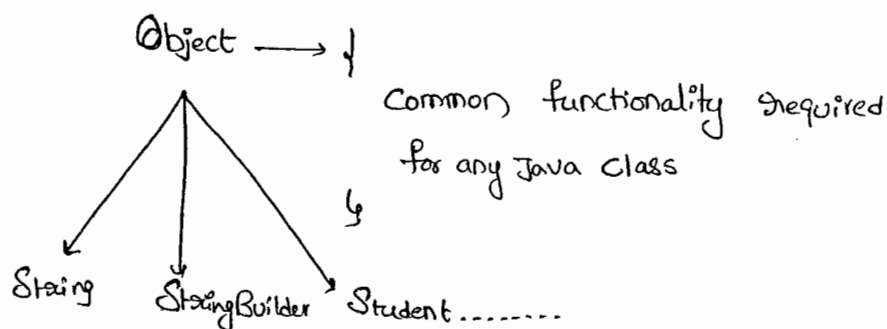 Object → {
Common functionality required
for any Java Class
}
String StringBuilder Student........